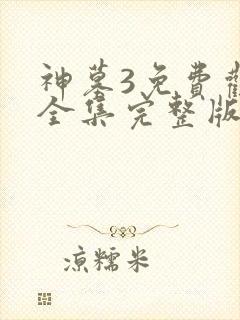 神墓3免費
全集完整版
凉糯米